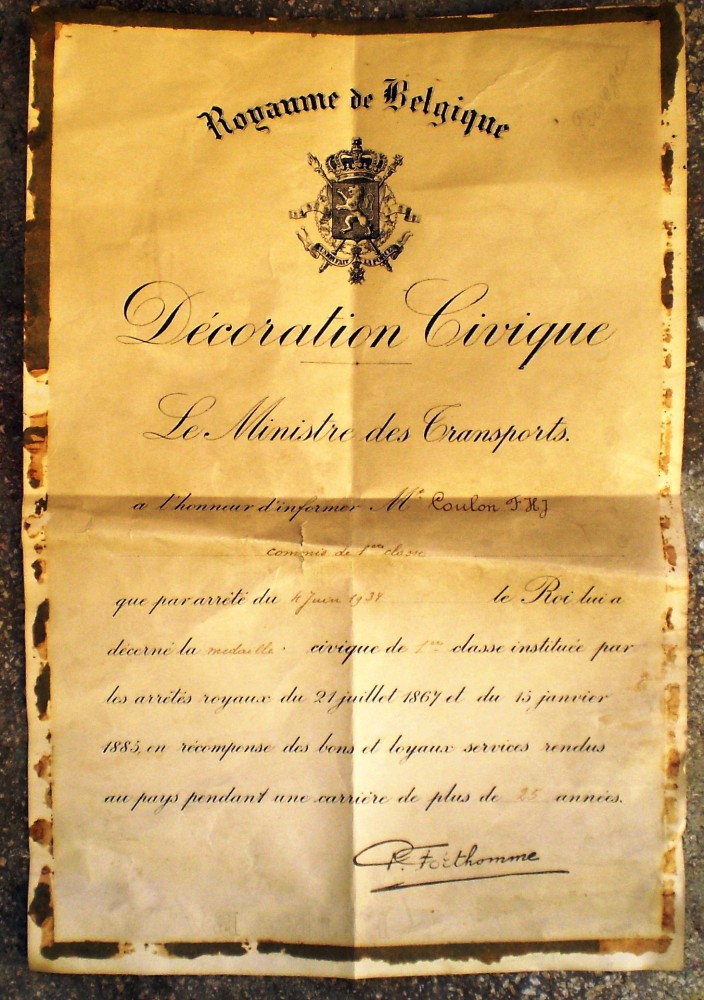 Royaume de Belgique
L'UNION FAIT LA FORCE
Décoration Civique
Le Ministre des Transports.
a l'honneur d'informer Mr Coulon FHJ
commis de 1ère classe
que par arrêté du 4 Juin 1934 le Roi lui a
décerné la médaille civique de 1re classe instituée par
les arrêtés royaux du 21 juillet 1867 et du 15 janvier
1885, en récompense des bons et loyaux services rendus
au pays pendant une carrière de plus de 25 années.
P. Forthomme